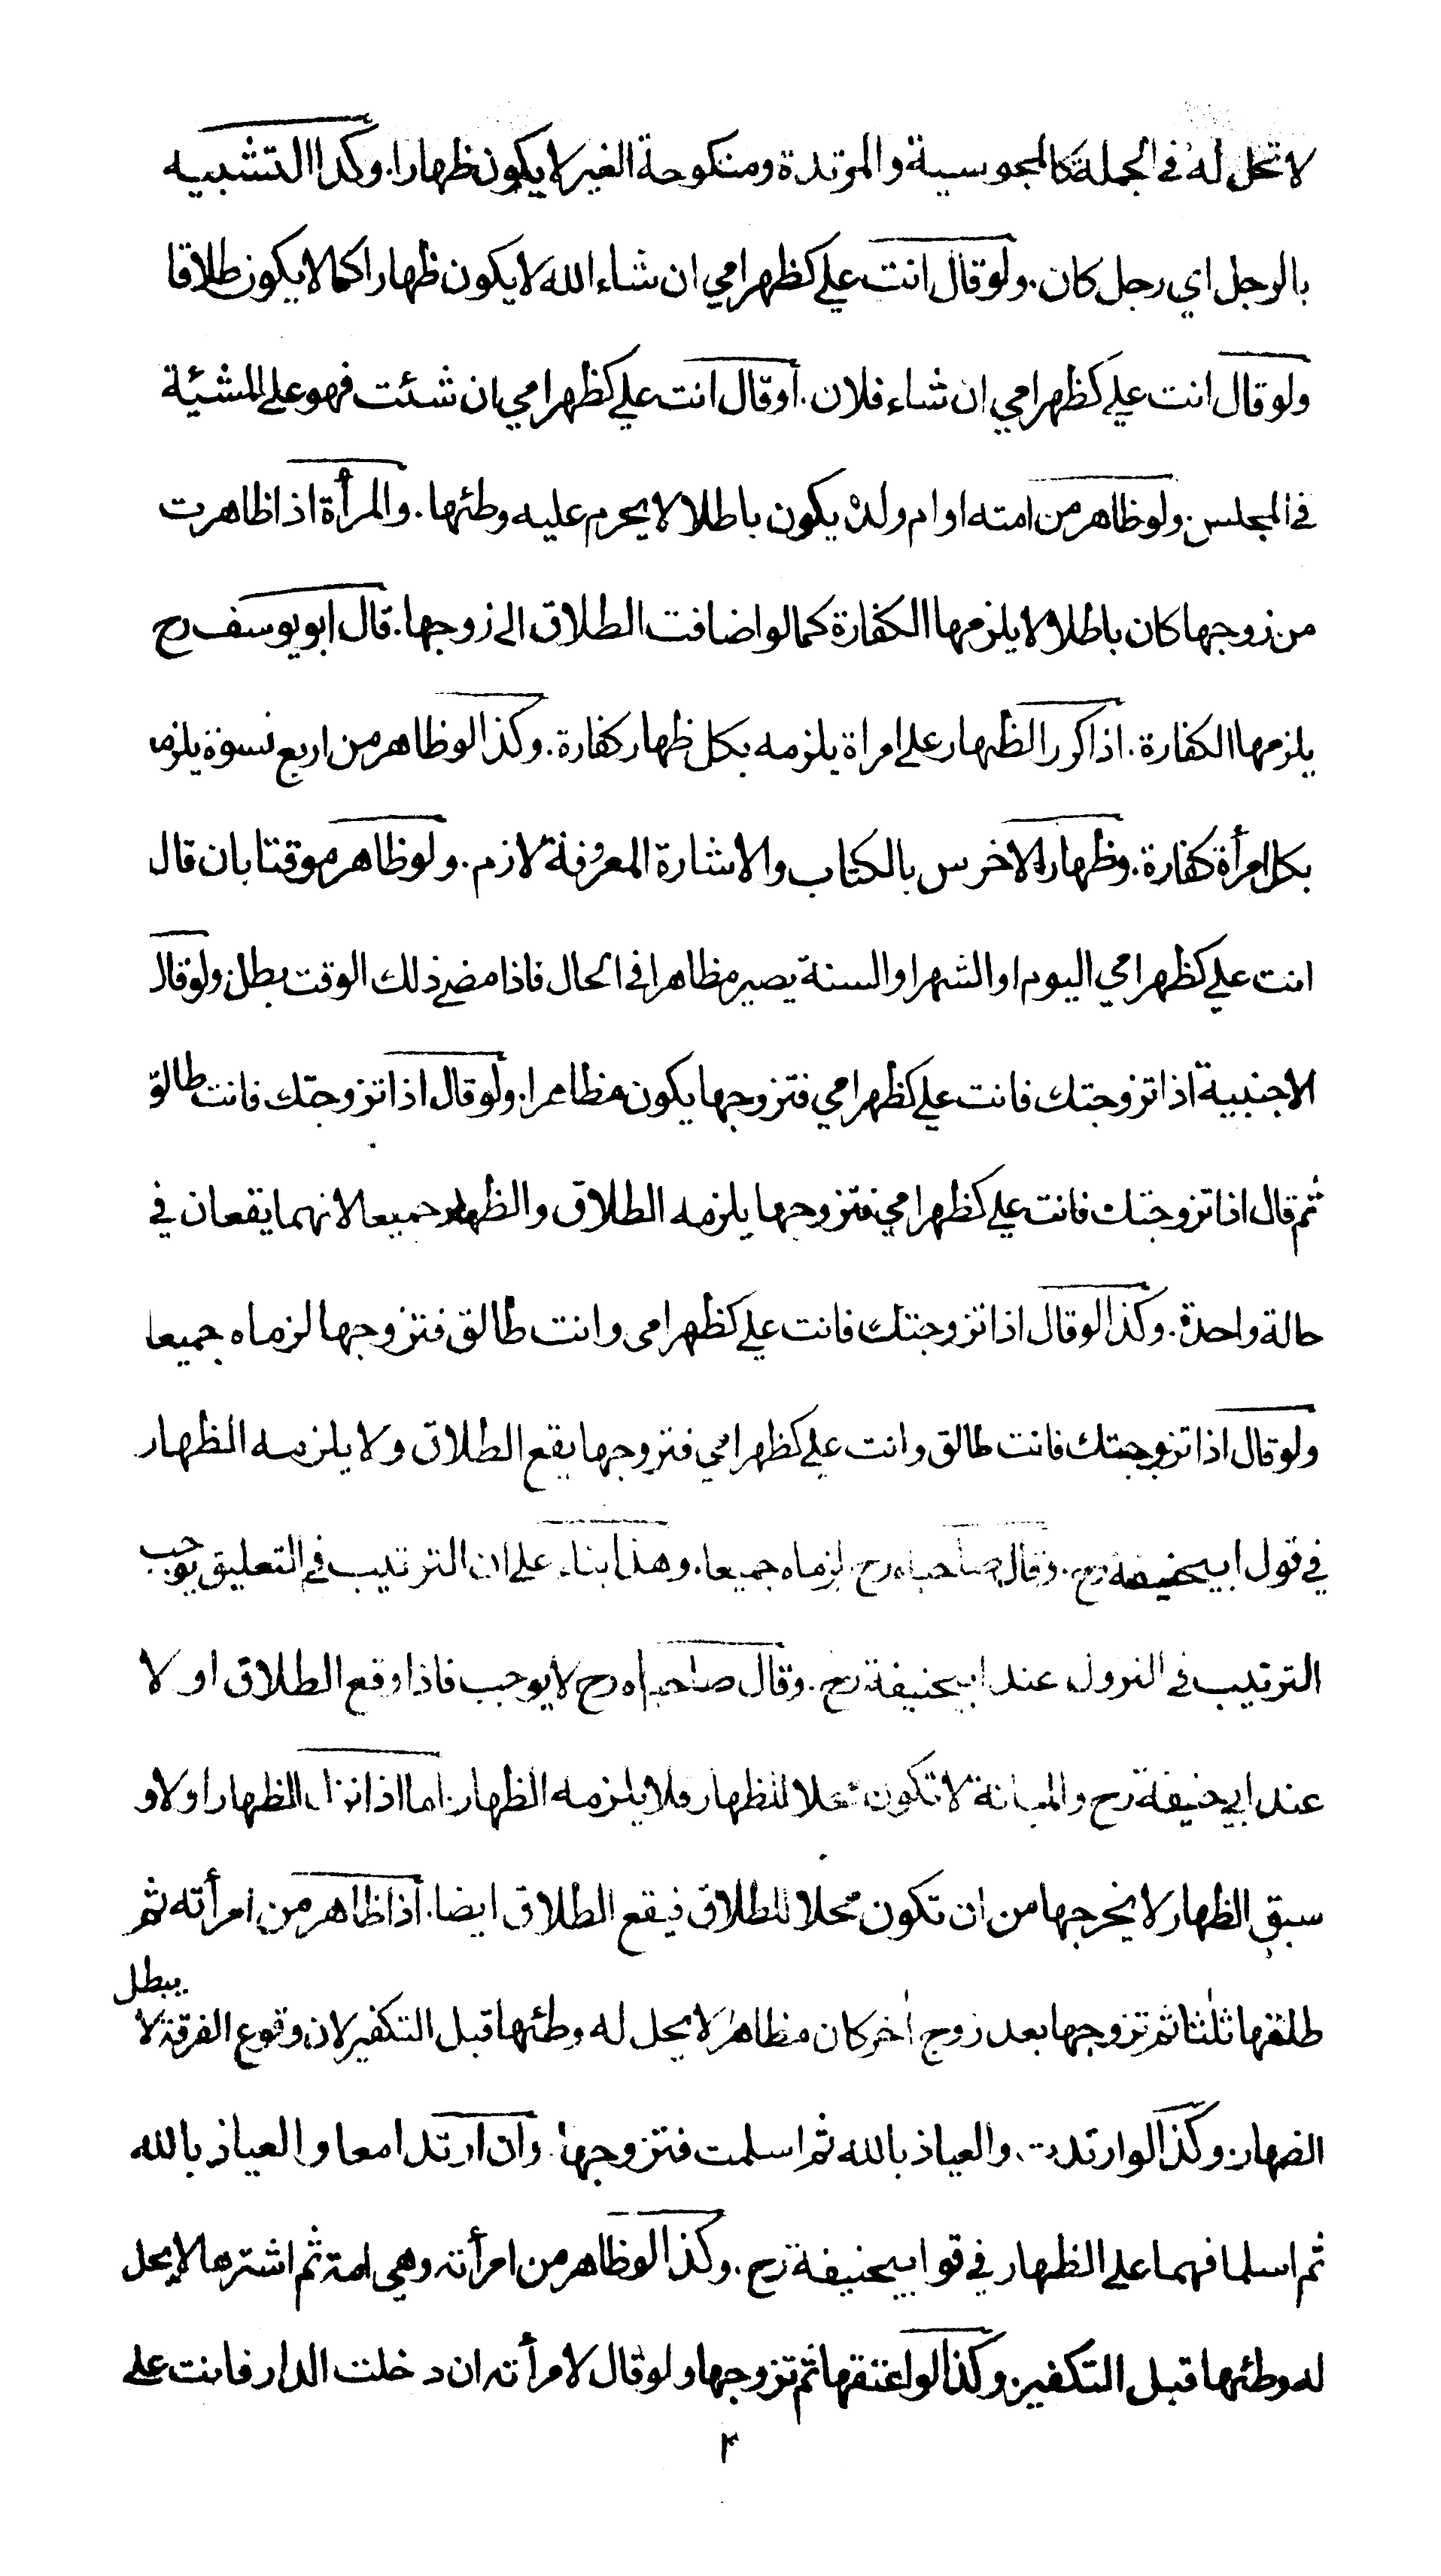 لا تحل له في الجملة كالمجوسية والمرتدة ومنكوحة الغير لا يكون ظهارا. وكذا التشبيه
بالرجل اي رجل كان. ولو قال انت علي كظهر امي ان شاء الله لا يكون ظهارا كما لا يكون طلاقا
ولو قال انت علي كظهر امي ان شاء فلان. أو قال انت علي كظهر امي ان شئت فهو على المشيئة
في المجلس. ولو ظاهر من امته او ام ولده يكون باطلا لا يحرم عليه وطئها. والمرأة اذا ظاهرت
من زوجها كان باطلا ولا يلزمها الكفارة كما لو اضافت الطلاق الى زوجها. قال ابو يوسف رح
يلزمها الكفارة. اذا كرر الظهار على امراة يلزمه بكل ظهار كفارة. وكذا لو ظاهر من اربع نسوة يلزمه
بكل امرأة كفارة. وظهار الاخرس بالكتاب والاشارة المعروفة لازم. ولو ظاهر موقتا بان قال
انت علي كظهر امي اليوم او الشهر او السنة يصير مظاهرا في الحال فاذا مضى ذلك الوقت بطل. ولو قال
الاجنبية اذا تزوجتك فانت علي كظهر امي فتزوجها يكون مظاهرا. ولو قال اذا تزوجتك فانت طالق
ثم قال اذا تزوجتك فانت علي كظهر امي فتزوجها يلزمه الطلاق والظهار جميعا لانهما يقعان في
حالة واحدة. وكذا لو قال اذا تزوجتك فانت علي كظهر امي وانت طالق فتزوجها لزماه جميعا
ولو قال اذا تزوجتك فانت طالق وانت علي كظهر امي فتزوجها يقع الطلاق ولا يلزمه الظهار
في قول ابي حنيفة رح. وقال صاحباه رح لزماه جميعا. وهذا بناء على ان الترتيب في التعليق يوجب
الترتيب في النزول عند ابي حنيفة رح. وقال صاحباه رح لا يوجب فاذا وقع الطلاق او لا
عند ابي حنيفة رح والمبانة لا تكون محلا للظهار فلا يلزمه الظهار. اما اذا نزل الظهار اولا و
سبق الظهار لا يخرجها من ان تكون محلا للطلاق فيقع الطلاق ايضا. اذا ظاهر من امرأته ثم
طلقها ثلثا ثم تزوجها بعد زوج اخر كان مظاهرا لا يحل له وطئها قبل التكفير لان وقوع الفرقة لا يبطل
الظهار. وكذا لو ارتدت والعياذ بالله ثم اسلمت فتزوجها. وان ارتدا معا والعياذ بالله
ثم اسلما فهما على الظهار في قو ابي حنيفة رح. وكذا لو ظاهر من امرأته وهي امة ثم اشترها لا يحل
له وطئها قبل التكفير. وكذا لو اعتقها ثم تزوجها ولو قال لامرأته ان دخلت الدار فانت علي